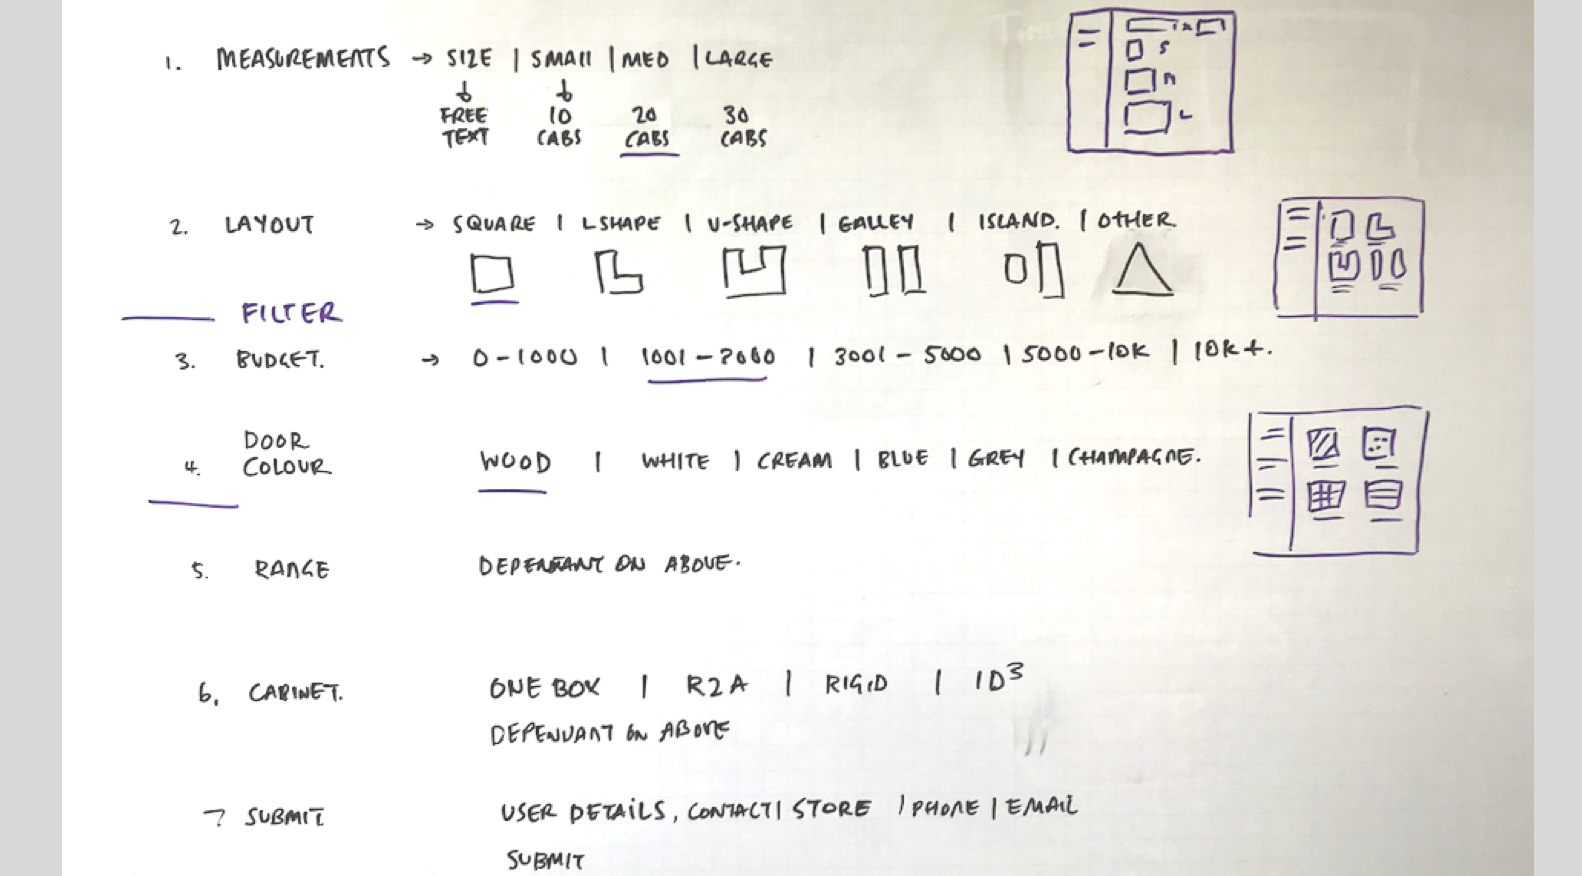 1. MEASUREMENTS → SIZE | SMALL | MED | LARGE
FREE TEXT 10 CABS 20 CABS 30 CABS
S
M
L
2. LAYOUT → SQUARE | L SHAPE | U-SHAPE | GALLEY | ISLAND. | OTHER.
FILTER
3. BUDGET. → 0-1000 | 1001- | 3001-5000 | 5000-10K | 10K+.
4. DOOR COLOUR WOOD | WHITE | CREAM | BLUE | GREY | CHAMPAGNE.
5. RANGE DEPENDANT ON ABOVE.
6. CABINET. ONE BOX | R2A | RIGID | ID³
DEPENDANT ON ABOVE
7 SUBMIT USER DETAILS, CONTACT | STORE | PHONE | EMAIL
SUBMIT